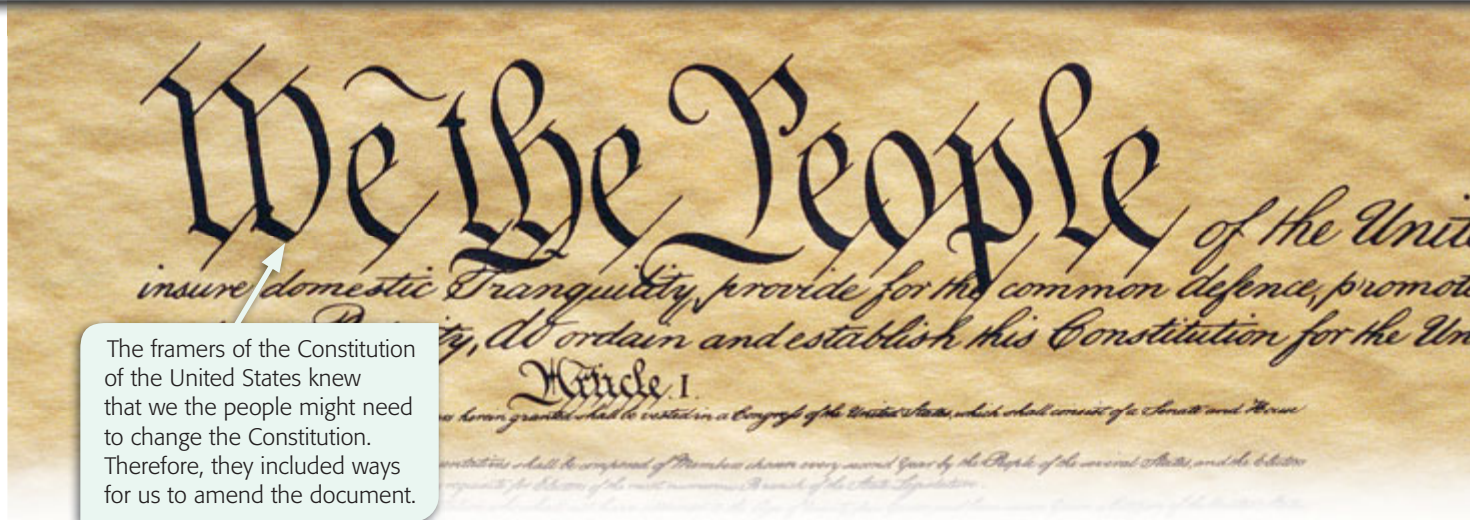 We the People of the Unite
insure domestic Tranquility, provide for the common defence, promote
ty, do ordain and establish this Constitution for the Un
Article I.
s herein granted shall be vested in a Congress of the United States, which shall consist of a Senate and House
entatives shall be composed of Members chosen every second Year by the People of the several States, and the Electors
requisite for Electors of the most numerous Branch of the State Legislature.
The framers of the Constitution
of the United States knew
that we the people might need
to change the Constitution.
Therefore, they included ways
for us to amend the document.